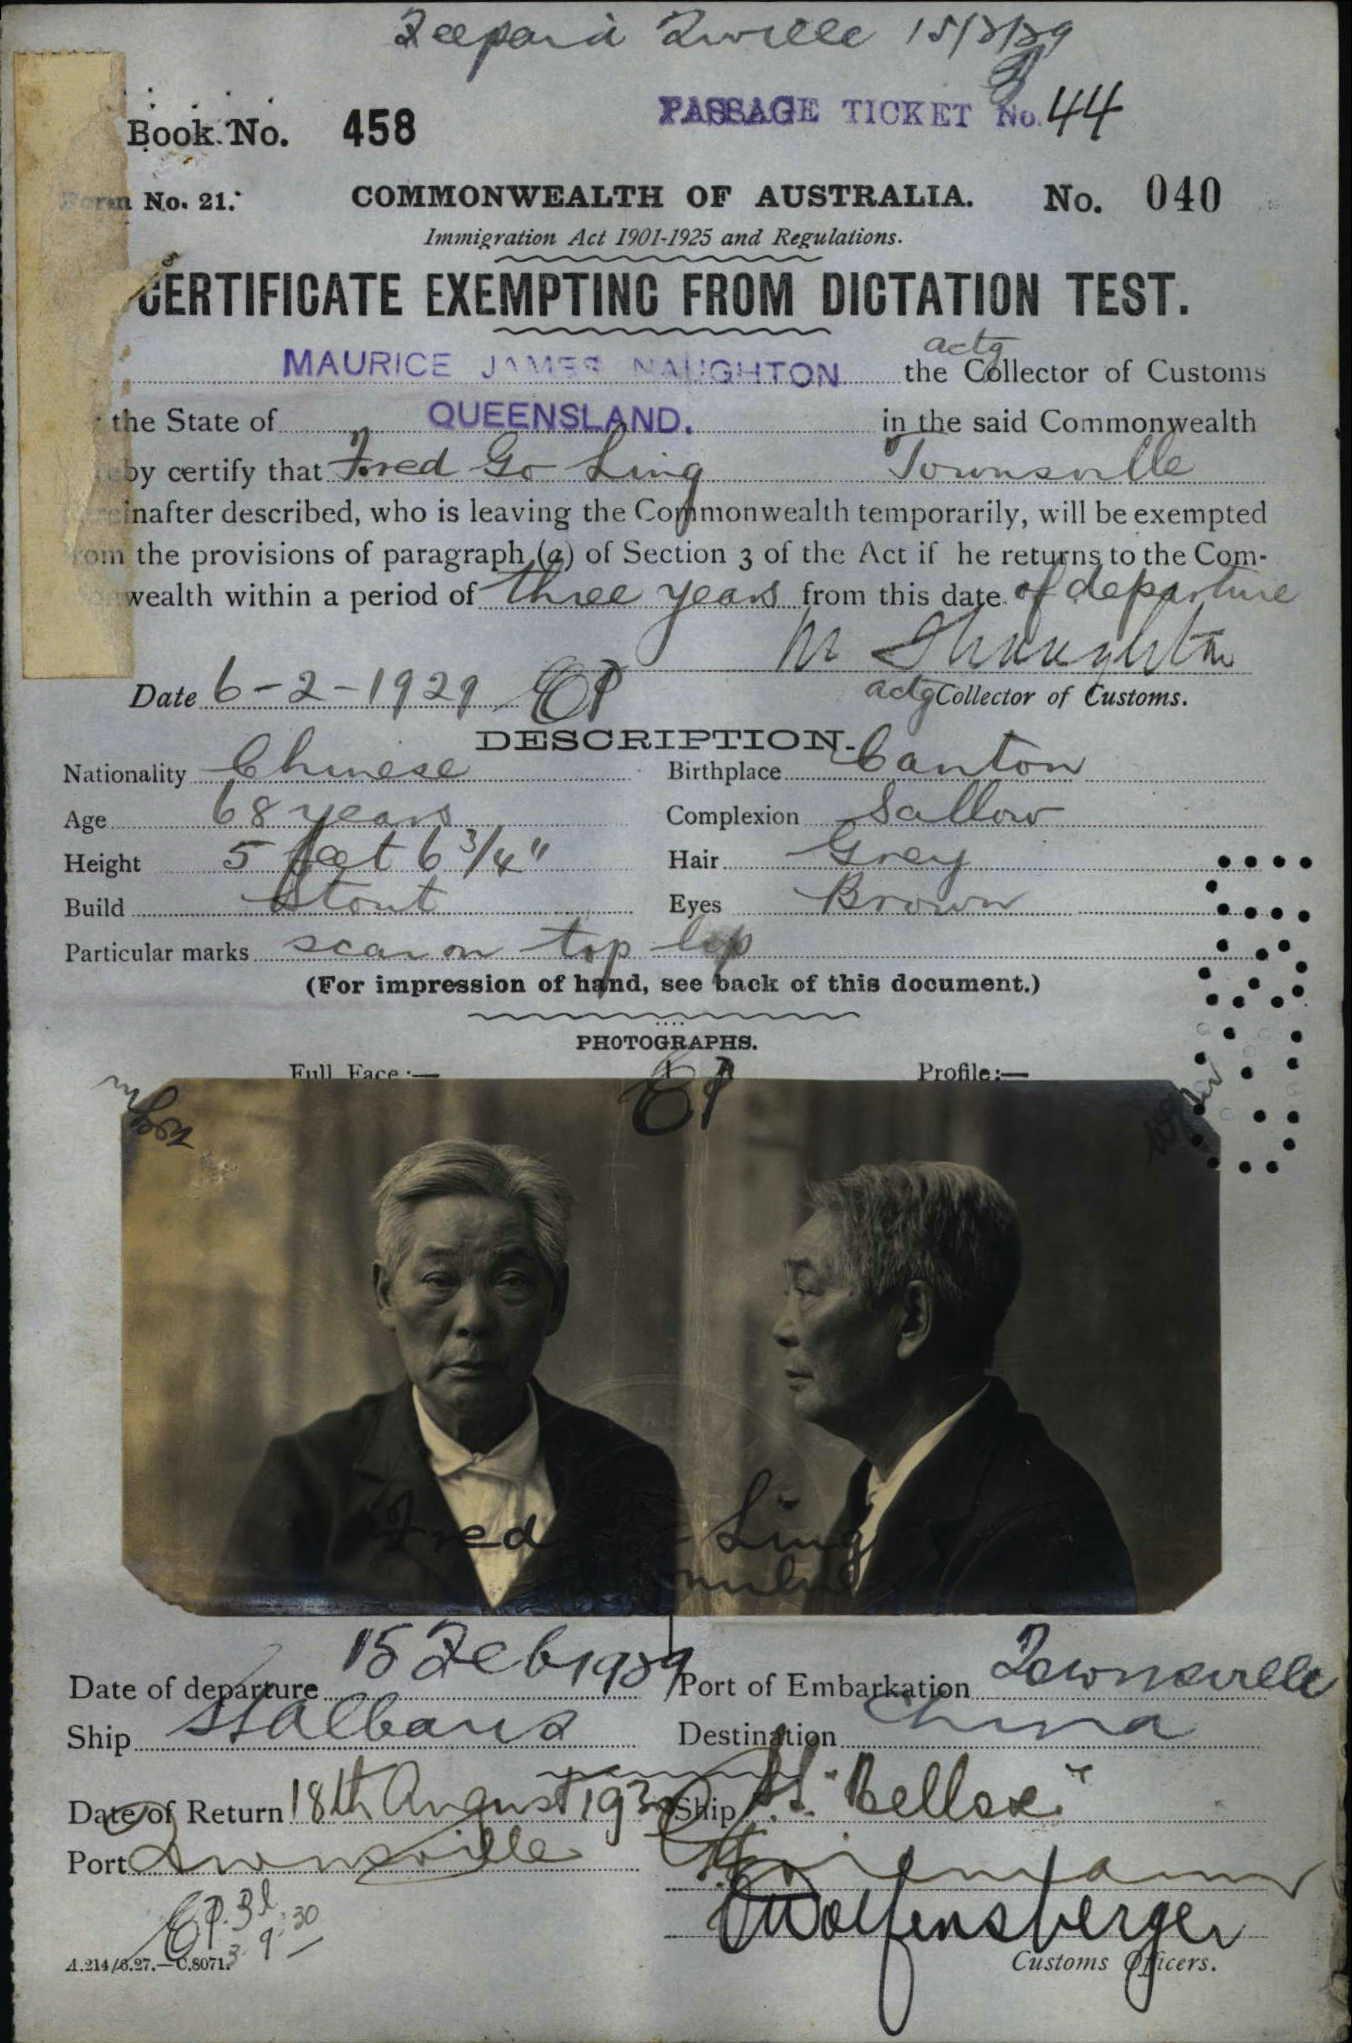 Tville 15/2/29
Book No. 458
PASSAGE TICKET No. 44
Form No. 21.
COMMONWEALTH OF AUSTRALIA. No. 040
Immigration Act 1901-1925 and Regulations.
CERTIFICATE EXEMPTING FROM DICTATION TEST.
MAURICE JAMES NAUGHTON the actg Collector of Customs
the State of QUEENSLAND. in the said Commonwealth
eby certify that Fred Go Ling Townsville
reinafter described, who is leaving the Commonwealth temporarily, will be exempted
from the provisions of paragraph (a) of Section 3 of the Act if he returns to the Com-
onwealth within a period of three years from this date of departure
Date 6-2-1929
actg Collector of Customs.
DESCRIPTION.
Nationality Chinese Birthplace Canton
Age 68 years Complexion Sallow
Height 5 feet 6 3/4" Hair Grey
Build Stout Eyes Brown
Particular marks scar on top lip
(For impression of hand, see back of this document.)
PHOTOGRAPHS.
Full Face :— Profile :—
Fred Ling
Date of departure 15 Feb 1929 Port of Embarkation Townsville
Ship St Albans Destination China
Date of Return 18th August 1930 Ship
Port Townsville
Wolfensberger
3.9.30
A.214/6.27.—C.8071. Customs Officers.